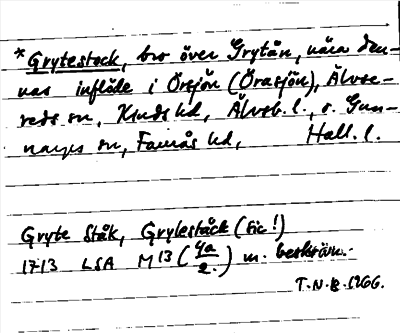 *Grytestock, bro över Grytån, nära den-
nas inflöde i Örsjön (Örasjön), Älvse-
reds sn, Kinds hd, Älvsb. l., o. Gun-
narps sn, Faurås hd, Hall. l.
Gryte Ståk, Grytestäck (sic!)
1713 LSA M 13 (4a/2.) m. beskrivn.
T.N.B. 1266.